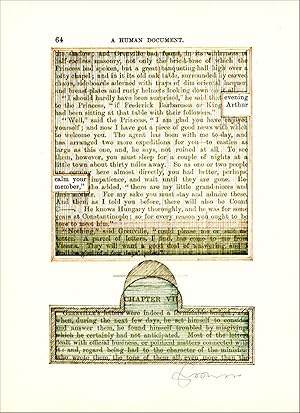 64 A HUMAN DOCUMENT.
the shadow, and Grenville had found, in its wilderness of
half-endless masonry, not only the brick-dust of which the
Princess had spoken, but a great banqueting-hall high over a
lofty chapel; and in it its old oak table, surrounded by carved
chairs, sideboards adorned with trays of dim oriental lacquer
and breast-plates and rusty helmets looking down on it all.
"I should hardly have been surprised," he said that evening
to the Princess, "if Frederick Barbarossa or King Arthur
had been sitting at that table with their followers."
"Well," said the Princess, "I am glad you have enjoyed
yourself; and now I have got a piece of good news with which
to welcome you. The agent has been with me to-day, and
has arranged two more expeditions for you—to castles as
large as this one, and, he says, not ruined at all. To see
them, however, you must sleep for a couple of nights at a
little town about thirty miles away. So as one or two people
are coming here almost directly, you had better,
calm your impatience, and wait until they are gone.
member," she added, "there are my little grand-nieces and
For my sake you must stay and admire them.
And then, as I told you before, there will also be Count
He knows Hungary thoroughly, and he was for some
years at Constantinople; so for every reason you ought to be
here to meet him."
"Nothing," said Grenville, "could please me or suit me
better. A parcel of letters, I find, has come to me from
Vienna. They will want a good deal of answering
CHAPTER VI
GRENVILLE'S letters were indeed a formidable budget; and
when, during the next few days, he set himself to consider
and answer them, he found himself troubled by misgivings
which he certainly had not anticipated. Most of the letters
dealt with official business, or political matters connected with
it; and, regard being had to the character of the minister
who wrote them, the tone of them all, even more than the